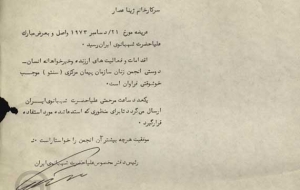 سرکار خانم ژینا عصار
عریضه مورخ ۲۱/دسامبر ۱۹۷۳ واصل و بعرض مبارک
علیاحضرت شهبانوی ایران رسید ۰
اقدامات و فعالیت های ارزنده و خیرخواهانه انسان
دوستی انجمن زنان سازمان پیمان مرکزی (سنتو) موجب
خوشوقتی فراوان است ۰
یکعدد ساعت مرحمتی علیاحضرت شهبانوی ایران
ارسال می گردد تا برای منظوری که استدعا شده مورد استفاده
قرار گیرد ۰
موفقیت هرچه بیشتر آن انجمن را خواستار است ۰
رئیس دفتر مخصوص علیاحضرت شهبانوی ایران